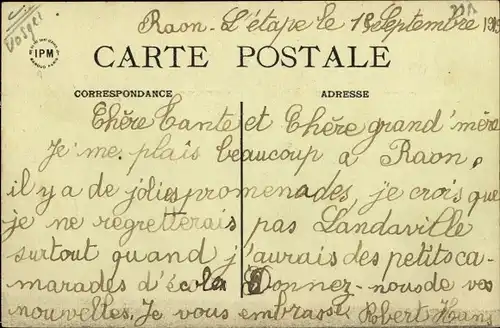 Vosges
Raon-L'étape le 18 Septembre 
IPM
CARTE POSTALE
CORRESPONDANCE
ADRESSE
Chère Tante et Chère grand'mère
Je me plais beaucoup a Raon,
il y a de jolies promenades, je crois que
je ne regretterais pas Landaville
surtout quand j'aurais des petits ca-
marades d'école. Donnez-nous de vos
nouvelles. Je vous embrasse Robert Hans